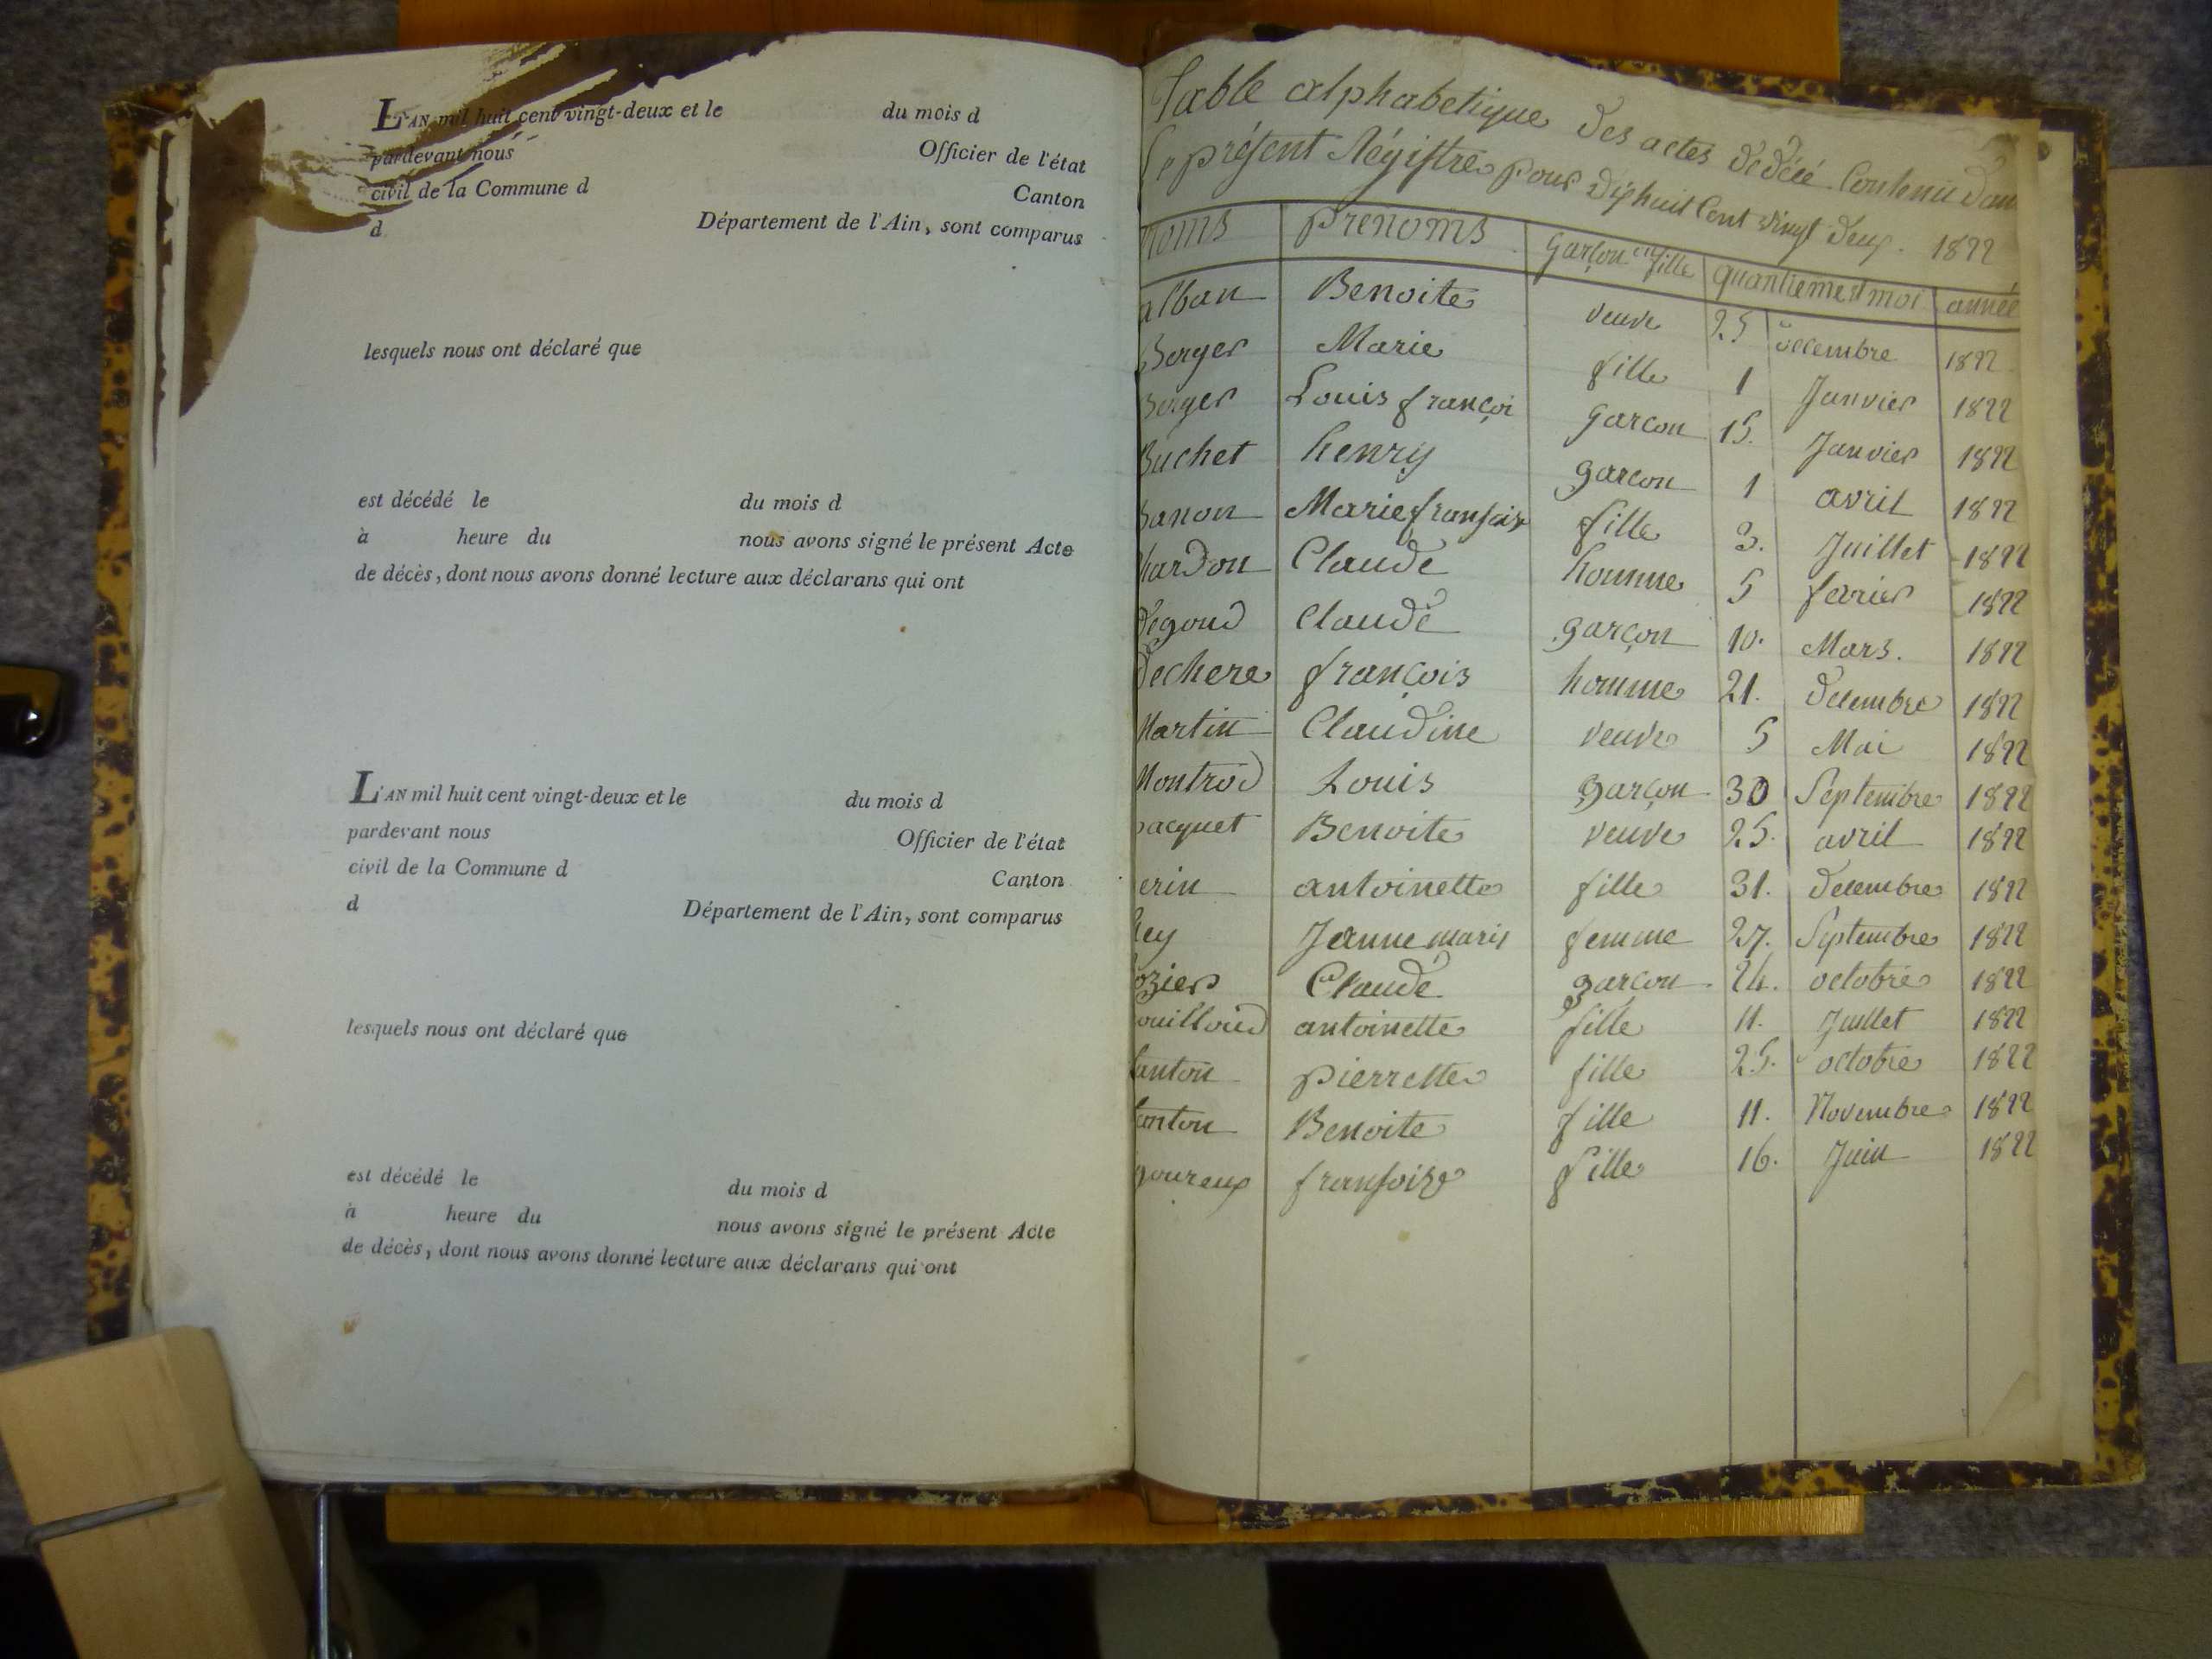 L'AN mil huit cent vingt-deux et le du mois d
pardevant nous Officier de l'état
civil de la Commune d Canton
d Département de l'Ain, sont comparus
lesquels nous ont déclaré que
est décédé le du mois d
à heure du nous avons signé le présent Acte
de décès, dont nous avons donné lecture aux déclarans qui ont
L'AN mil huit cent vingt-deux et le du mois d
pardevant nous Officier de l'état
civil de la Commune d Canton
d Département de l'Ain, sont comparus
lesquels nous ont déclaré que
est décédé le du mois d
à heure du nous avons signé le présent Acte
de décès, dont nous avons donné lecture aux déclarans qui ont
Table alphabetique des actes dedécé Contenu dan
le présent Régistre pour dixhuit Cent vingt deux. 1822
noms prenoms Garçon en fille quantieme et moi année
alban Benoite veuve 25 decembre 1822
Berger Marie fille 1 Janvier 1822
Berger Louis françoi Garcon 15. Janvier 1822
Buchet henry garcon 1 avril 1822
Marie fransoise fille 3. Juillet 1822
hardon Claude homme 5 fevrier 1822
degoud Claude garçon 10. Mars. 1822
dechere françois homme 21. decembre 1822
Martin Claudine veuve 5 Mai 1822
Montrod Louis garçon 30 Septembre 1822
acquet Benoite veuve 25. avril 1822
erin antoinette fille 31. decembre 1822
Rey Jeanne marie femme 27. Septembre 1822
ozier Claude garcon 24. octobre 1822
ouilloud antoinette fille 11. Juillet 1822
anton pierrette fille 25. octobre 1822
anton Benoite fille 11. Novembre 1822
goureux fransoise fille 16. Juin 1822